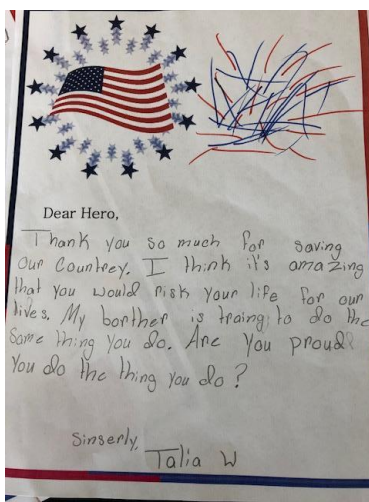 Dear Hero,
Thank you so much for saving
our Countrey. I think it's amazing
that you would risk your life for our
lives. My borther is traing to do the
same thing you do. Are you proud?
you do the thing you do?
Sinserly,
Talia W